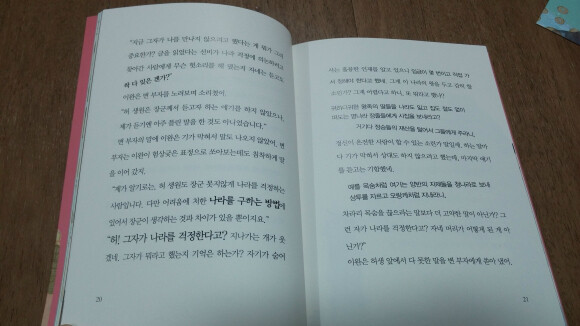 "지금 그자가 나를 만나지 않으려고 했다는 게 뭐가 그리
중요한가? 글을 읽었다는 선비가 나라 걱정에
찾아간 사람에게 무슨 헛소리를 해 댔는지 자네는 듣고도
하 다 잊은 겐가?"
이완은 변 부자를 노려보며 소리쳤다.
"허 생원은 장군께서 듣고자 하는 얘기를 하지 않았으나,
제가 듣기엔 아주 틀린 말을 한 것도 아니었습니다."
변 부자의 말에 이완은 기가 막혀서 말도 나오지 않았어, 변
부자는 이완이 험상궂은 표정으로 쏘아보는데도 침착하게 말
을 이어 갔지.
"제가 알기로는, 허 생원도 장군 못지않게 나라를 걱정하는
사람입니다. 다만 어려움에 처한 나라를 구하는 방법에
있어서 장군이 생각하는 것과 차이가 있을 뿐이지요."
"허! 그자가 나라를 걱정한다고? 지나가는 개가 웃
겠네. 그자가 뭐라고 했는지 기억은 하는가? 자기가 숨어
20
서는 훌륭한 인재를 알고 있으니 임금이 몇 번이고 허럼 가
서 청해야 한다고 했네. 그게 이 나라의 왕을 두고 감히 할
소린가? 그게 어렵다고 하니, 또 뭐라고 했나?
떠도는 명나라 장졸들에게 시집을 보내라고?
거기다 정승들의 재산을 털어서 그들에게 주라니,
정상이 온전한 사람이 할 수 있는 소린가 말일세, 하는 말마
다 기가 막혀서 상대도 하지 않으려고 했는데, 마지막 얘기
를 듣고는 기함했네.
예를 목숨처럼 여기는 양반의 자제들을 청나라로 보내
상투를 자르고 오랑캐처럼 지내라니,
차라리 목숨을 끊으라는 말보다 더 고약한 말이 아닌가? 그
런 자가 나라를 걱정한다고? 자네 머리가 어떻게 된 게 아
닌가?"
이완은 허생 앞에서 다 못한 말을 변 부자에게 쏟아 냈어,
21